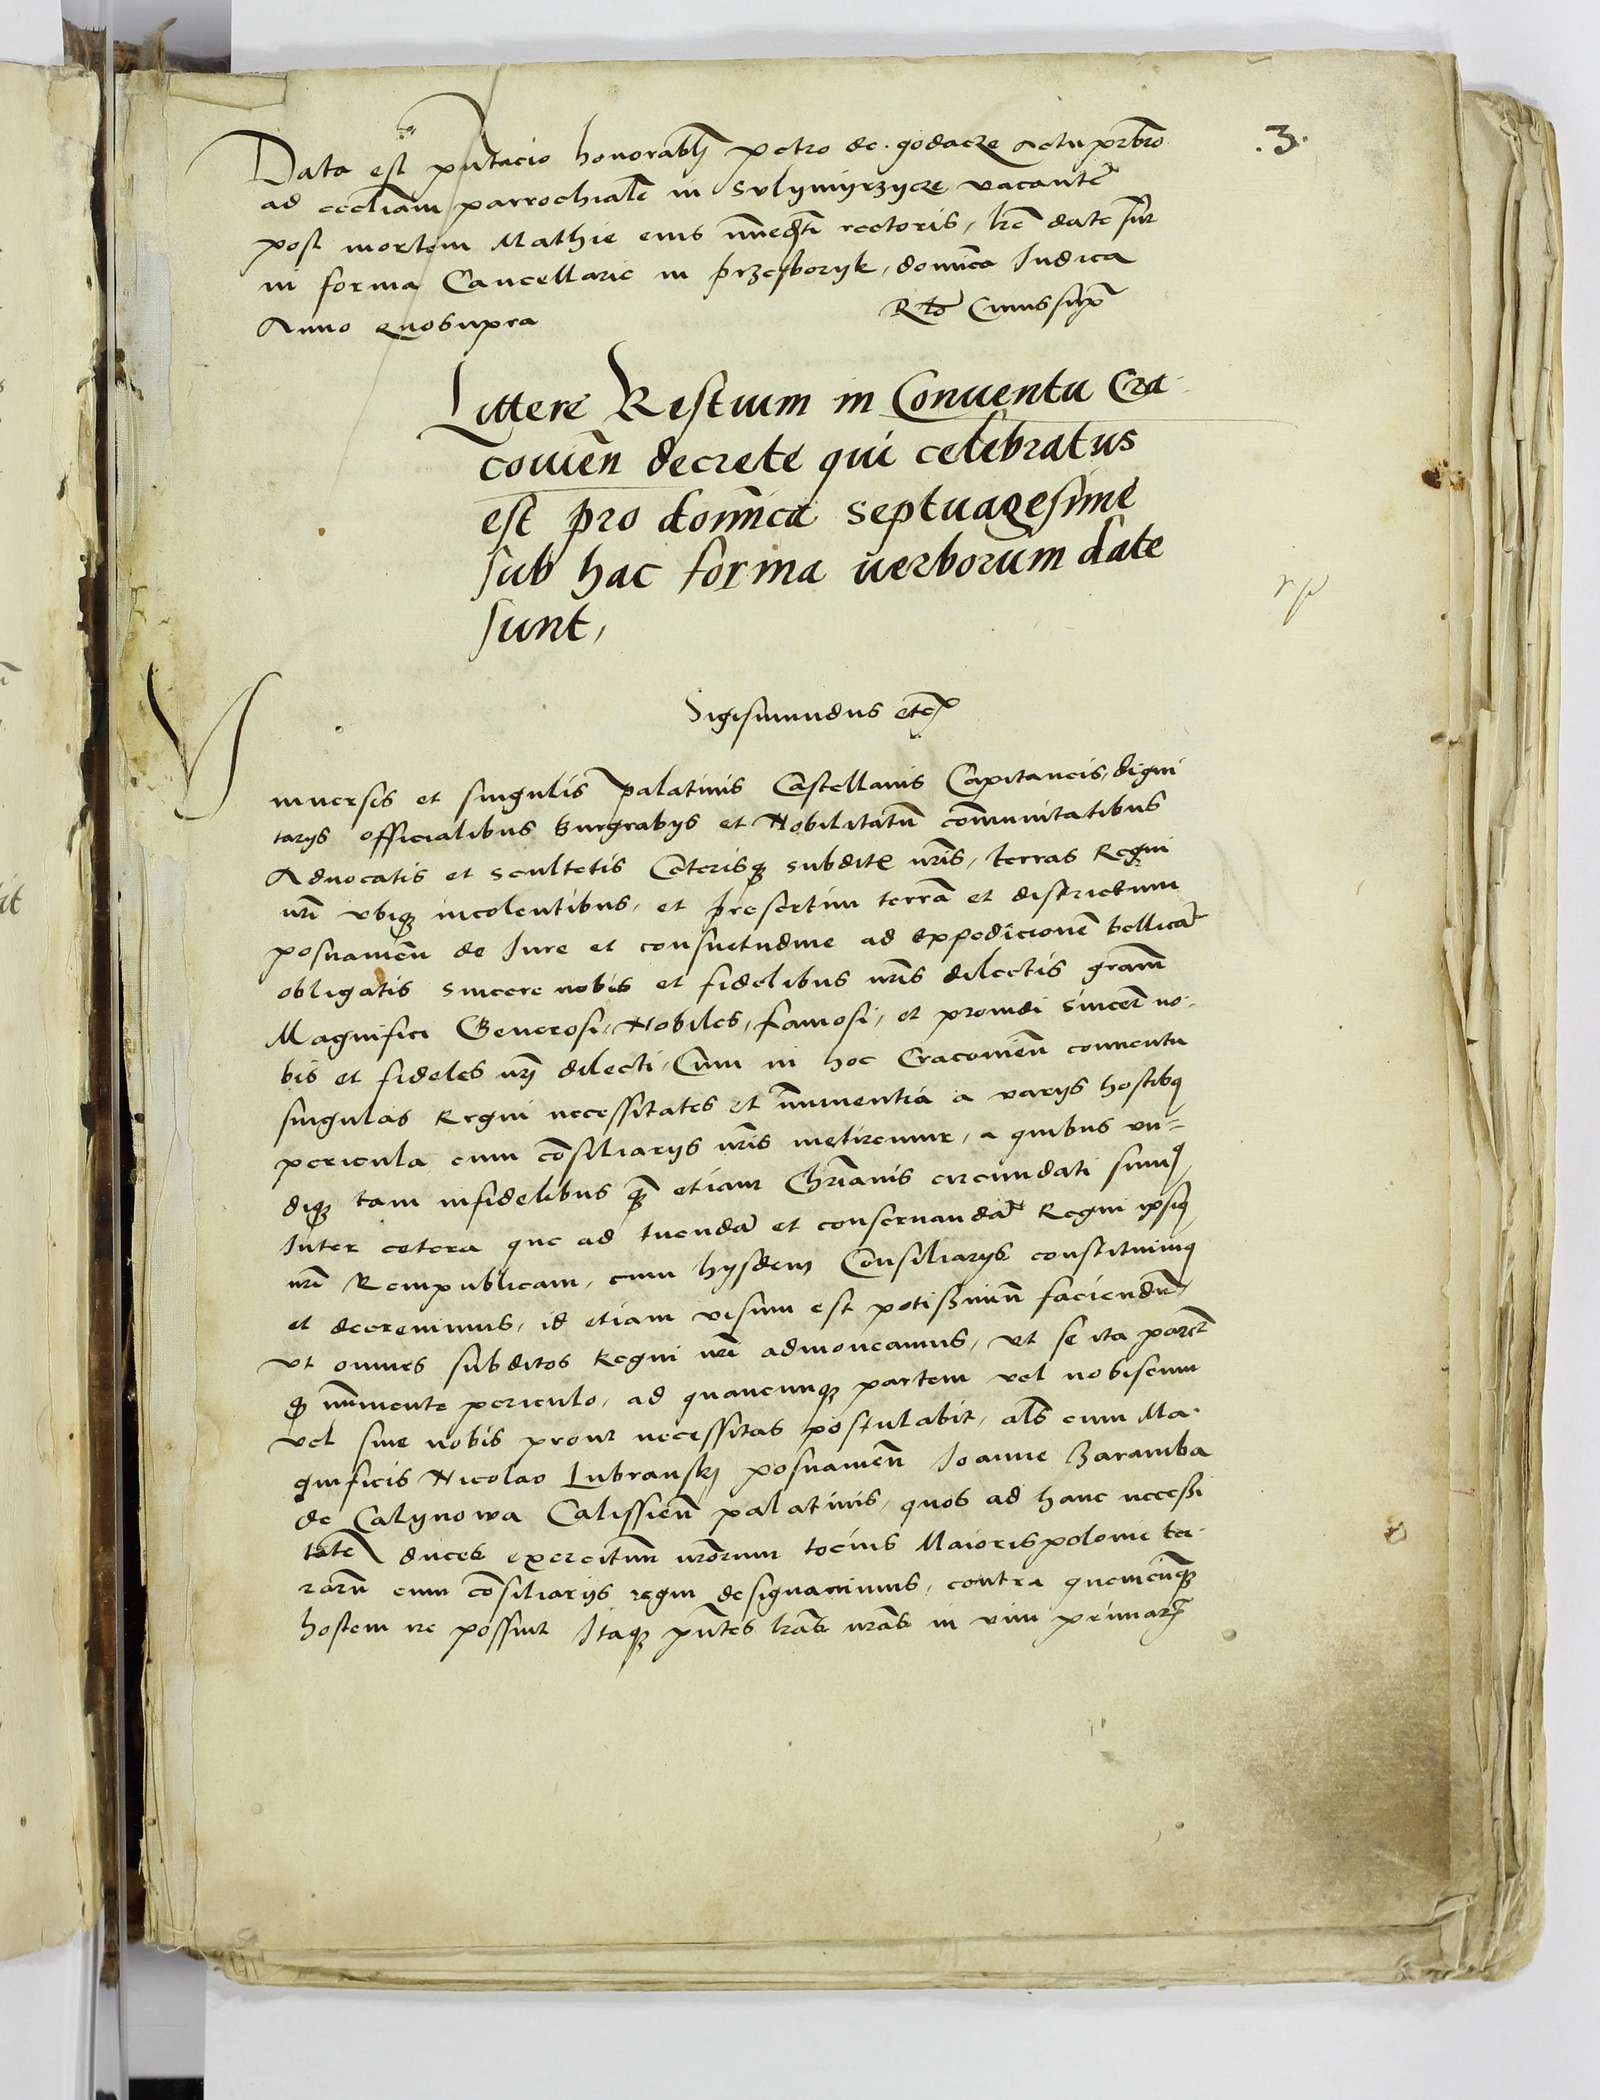 .3.
Data est pñtacio honorabłj petro de. godacze actu pr̃bro
ad eccliam parrochialē in Sulymyrzycze vacantē
post mortem Mathie eius rectoris, lr̃e date sūt
in forma Cancellarie in przesboryk, domīca Judica
Anno quosupra Rtō Cuiussup̃
Littere Restium in Conuentu Cra-
couień decrete qui celebratus
est pro domīca septuagesime
sub hac forma uerborum date
sunt,
Sigismundus etc̃
Vniuersis et singulis palatinis Castellanis Capitaneis, digni
tarijs officialibus Burgrabijs et Nobilitatū cōmunitatibus
Aduocatis et scultetis Ceterisq; subditꝭ nr̄is, terras Regni
nr̄i vbiq; incolentibus, et presertim terrā et districtum
posnanień de Jure et consuetudine ad expedicionē bellicā
obligatis sincere nobis et fidelibus nr̄is dilectis grām̄
Magnifici Generosi, Nobiles, famosi, et prouidi sincerē no-
bis et fideles nr̄j dilecti, Cum in hoc Cracouień conuentu
singulas Regni necessitates et imminentia a varijs hostibꝰ
pericula cum cōsiliarijs nr̄is metiremur, a quibus vn=
diq; tam infidelibus q̄; etiam Chr̄ianis circundati sumꝰ,
Inter cetera que ad tuendā et conseruandā Regni ipsiꝰ
nr̄i Rempublicam, cum hijsdem Consiliarijs constituimꝰ
et decreuimus, id etiam visum est potissimū faciendū,
vt omnes subditos Regni nr̄i admoneamus, vt se ita parēt
q̄ īminente periculo, ad quamcunq; partem vel nobiscum
vel sine nobis prout necessitas postulabit, als̄ cum Ma-
gnificis Nicolao Lubransky posnanień Joanne Zaramba
de Calynowa Calissień palatinis, quos ad hanc necessi
tatē duces exercituū nr̄orum tocius Maiorispolonie ter-
rarū cum cōsiliarijs regni designauimus, contra quemcūq;
hostem ire possint Itaq; pn̄tes lr̄as nr̄as in vim primarū